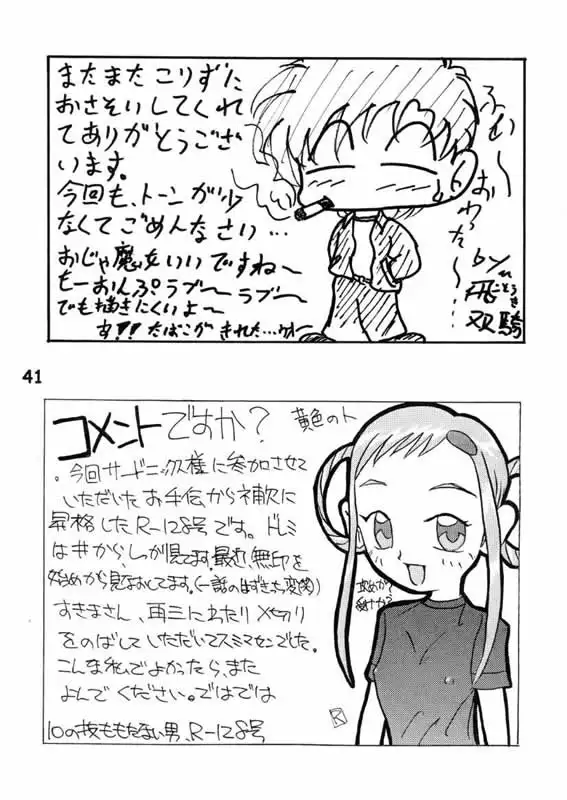 またまたこりずに
おさそいしてくれ
てありがとうござ
います。
今回も、トーンが少
なくてごめんなさい…
おじゃ魔女いいですね〜
もーおんぷラブ〜ラブ〜
でも描きにくいよ〜
あ!!たばこがきれた…
ふぃ〜
おわった〜…
by
飛
双騎
41
コメントですか?
黄色の
今回サードニックス様に参加させて
いただいたお手伝から補欠に
昇格したR-128号です。ドレミ
は#からしか見てます。最近、無印を
始めから見なおしてます。(一話のはずきちゃん変)
すきまさん、再三にわたり〆切り
をのばしていただいてスミマセンでした。
こんな私でよかったら、また
よんでください。ではでは
10の技ももたない男、R-128号
攻めが?
R